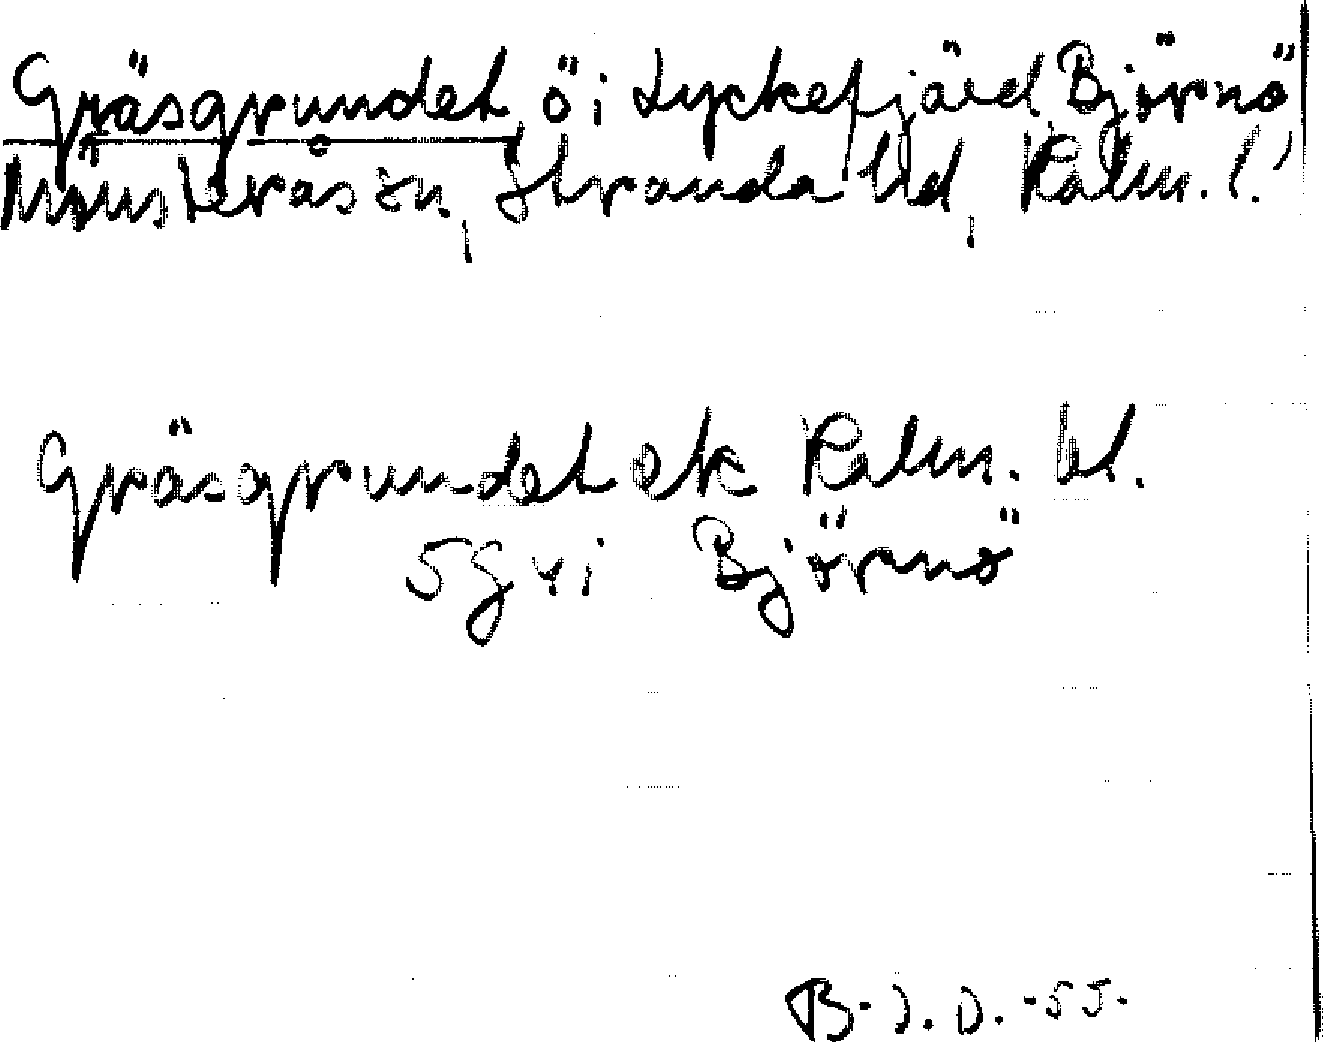 Gräsgrundet ö i Lyckefjärd, Björnö,
Mönsterås sn, Stranda hd, Kalm. l.
Gräsgrundet ek Kalm. bl.
5g 4i Björnö
B. J. D. -55.